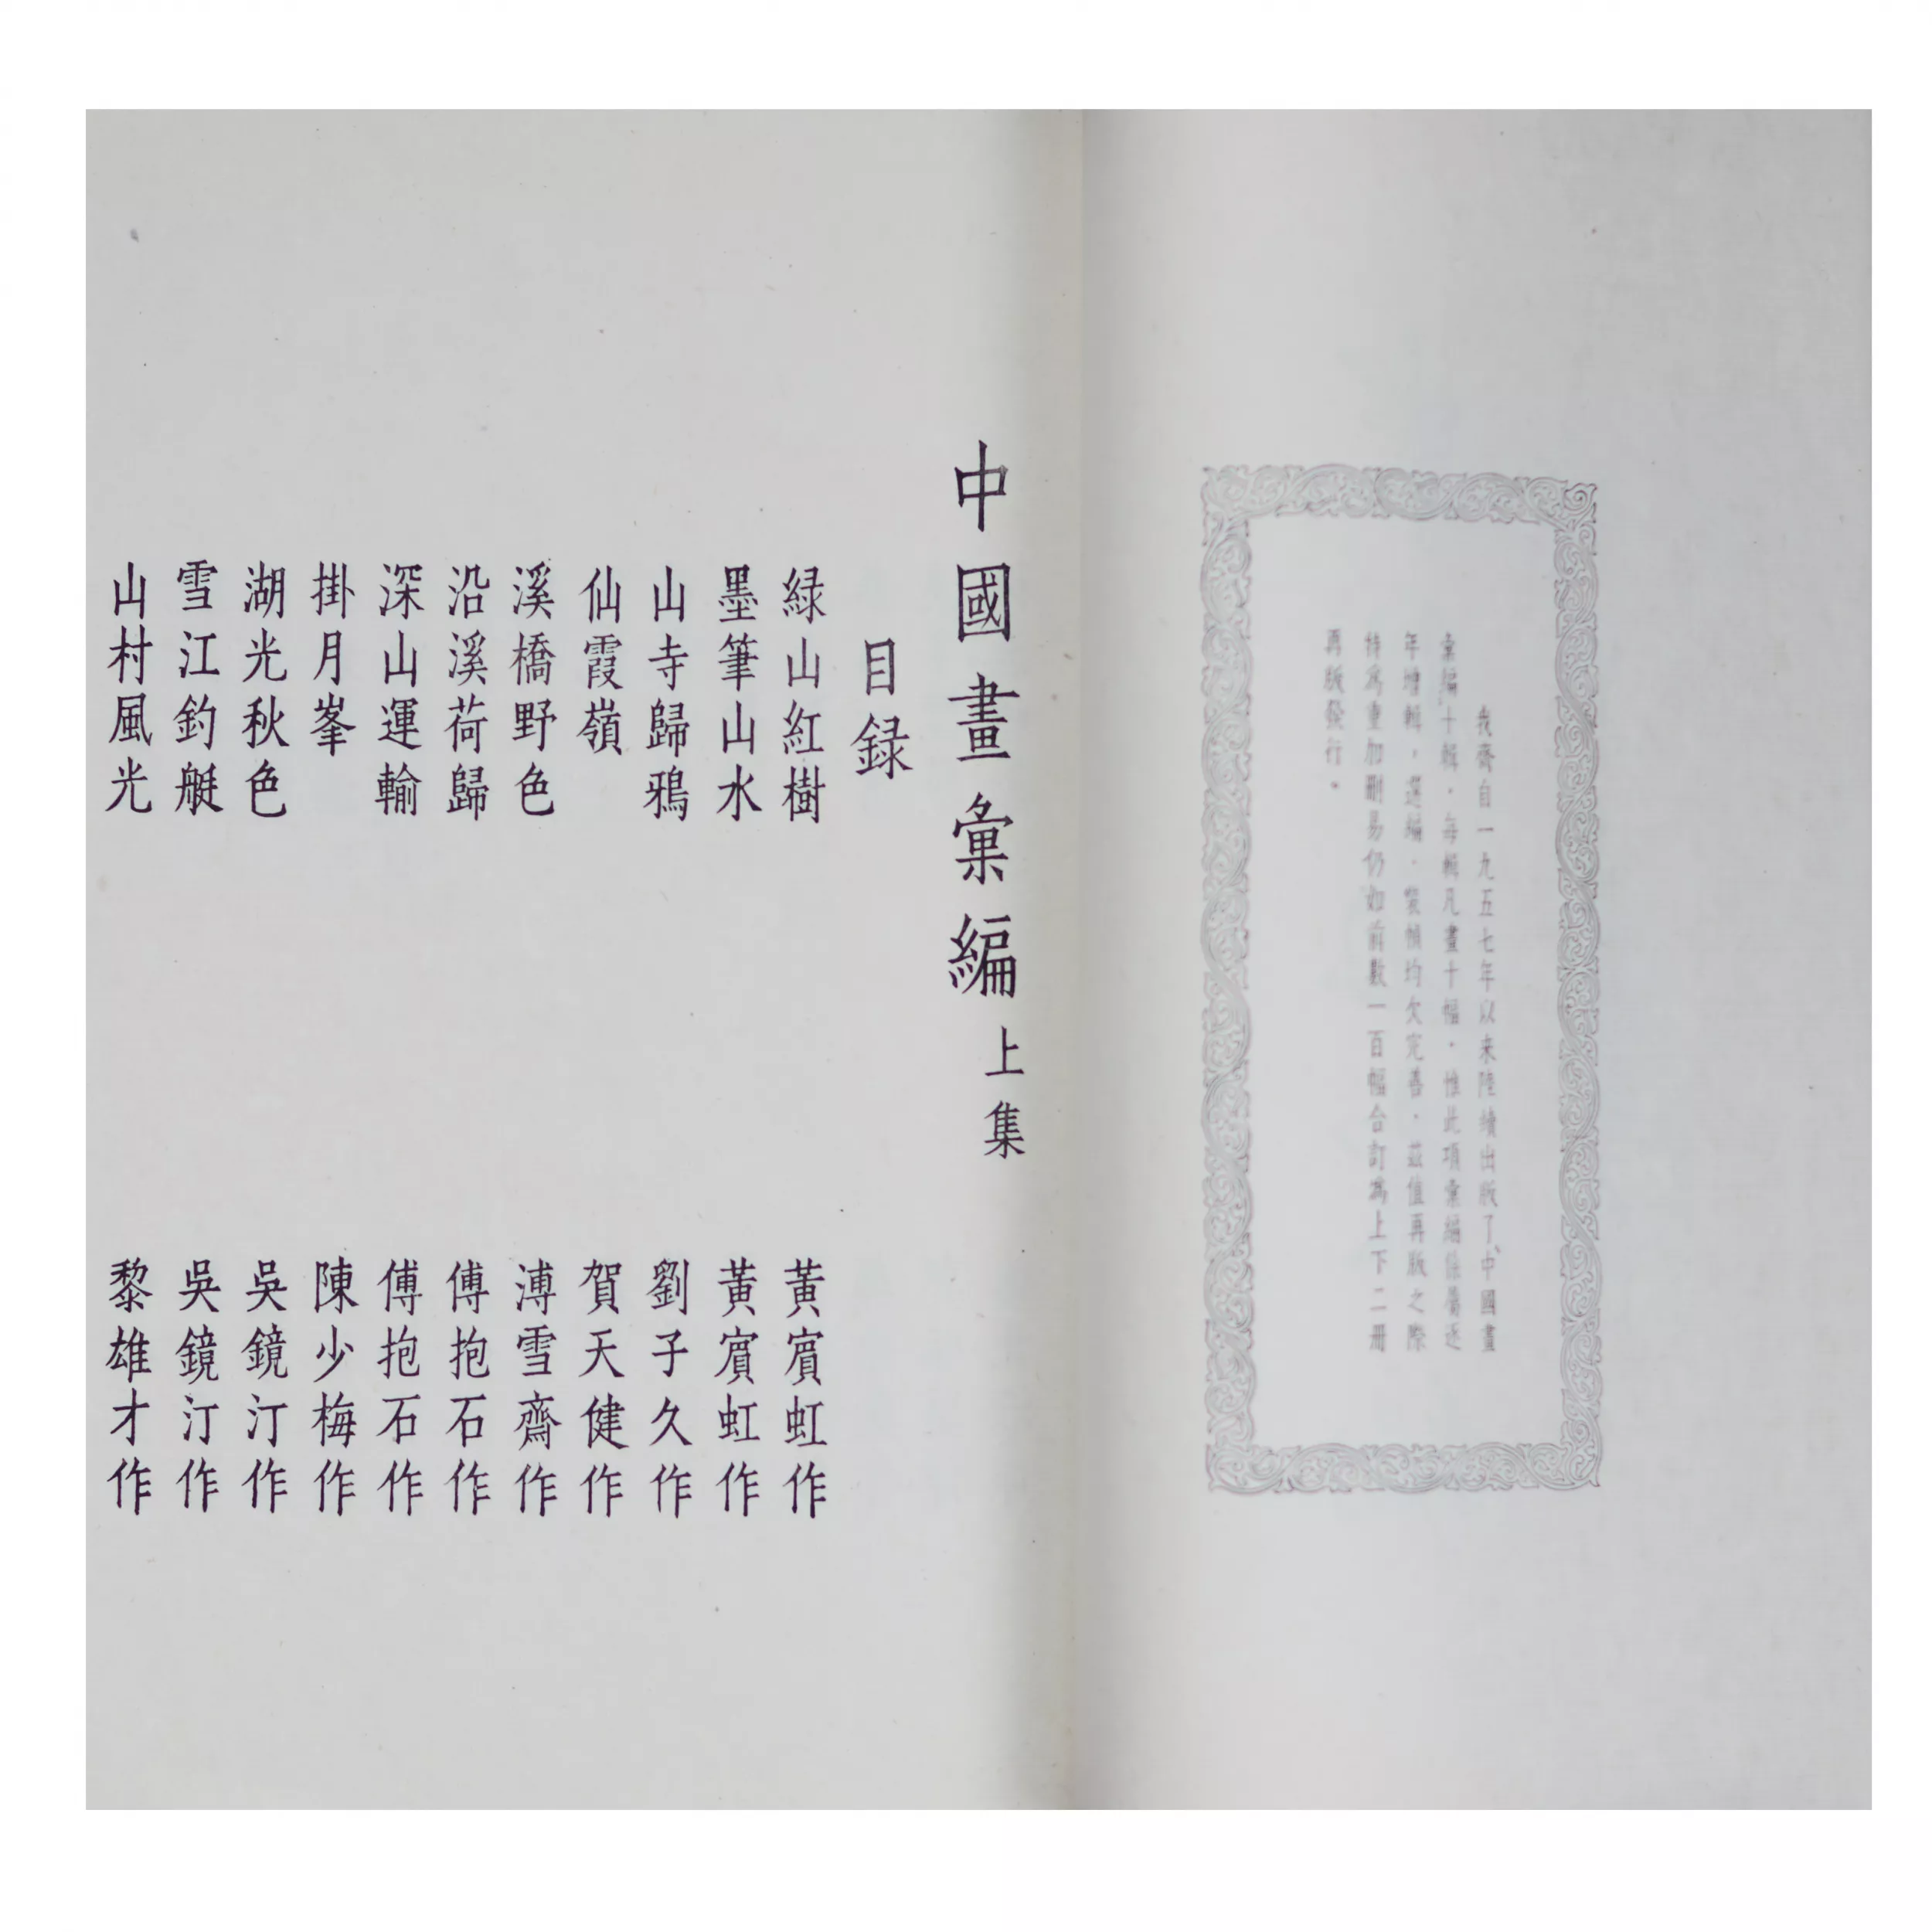 我齋自一九五七年以来陸續出版了《中國畫
彙編十輯，每輯凡畫十幅，惟此項彙編係屬逐
年增輯，選編、裝幀均欠完善，茲值再版之際
特為重加刪易仍如前數一百幅合訂為上下二册
再版發行。
中國畫彙編上集
目録
緑山紅樹 黃賓虹作
墨筆山水 黃賓虹作
山寺歸鴉 劉子久作
仙霞嶺 賀天健作
溪橋野色 溥雪齋作
沿溪荷歸 傅抱石作
深山運輸 傅抱石作
掛月峯 陳少梅作
湖光秋色 吳鏡汀作
雪江釣艇 吳鏡汀作
山村風光 黎雄才作